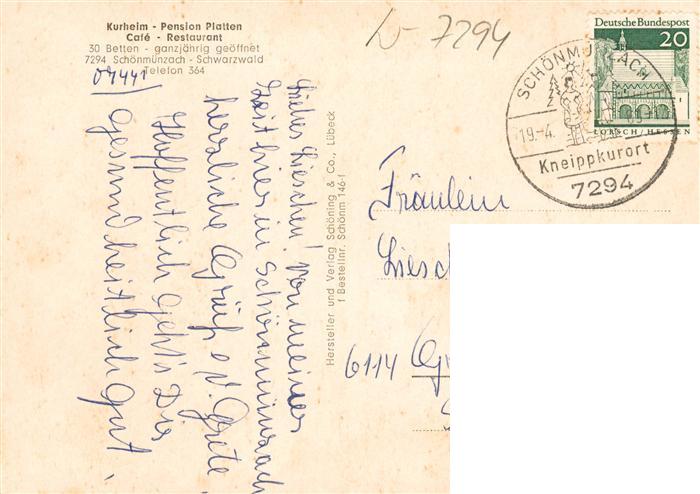 Kurheim - Pension Platten
Café - Restaurant
30 Betten - ganzjährig geöffnet
7294 Schönmünzach - Schwarzwald
Telefon 364
07447/
N-7294
Deutsche Bundespost
20
LORSCH/HESSEN
SCHÖNMÜNZACH
19.-4.
Kneippkurort
7294
Liebes Lieschen! Von meiner
Zeit hier in Schönmünzach
herzliche Grüße v. Grete
Hoffentlich geht's Dir
gesundheitlich gut.
Hersteller und Verlag Schöning & Co., Lübeck
f Bestellnr. Schönm 146-f
Fräulein
Liesch
6114 Gr